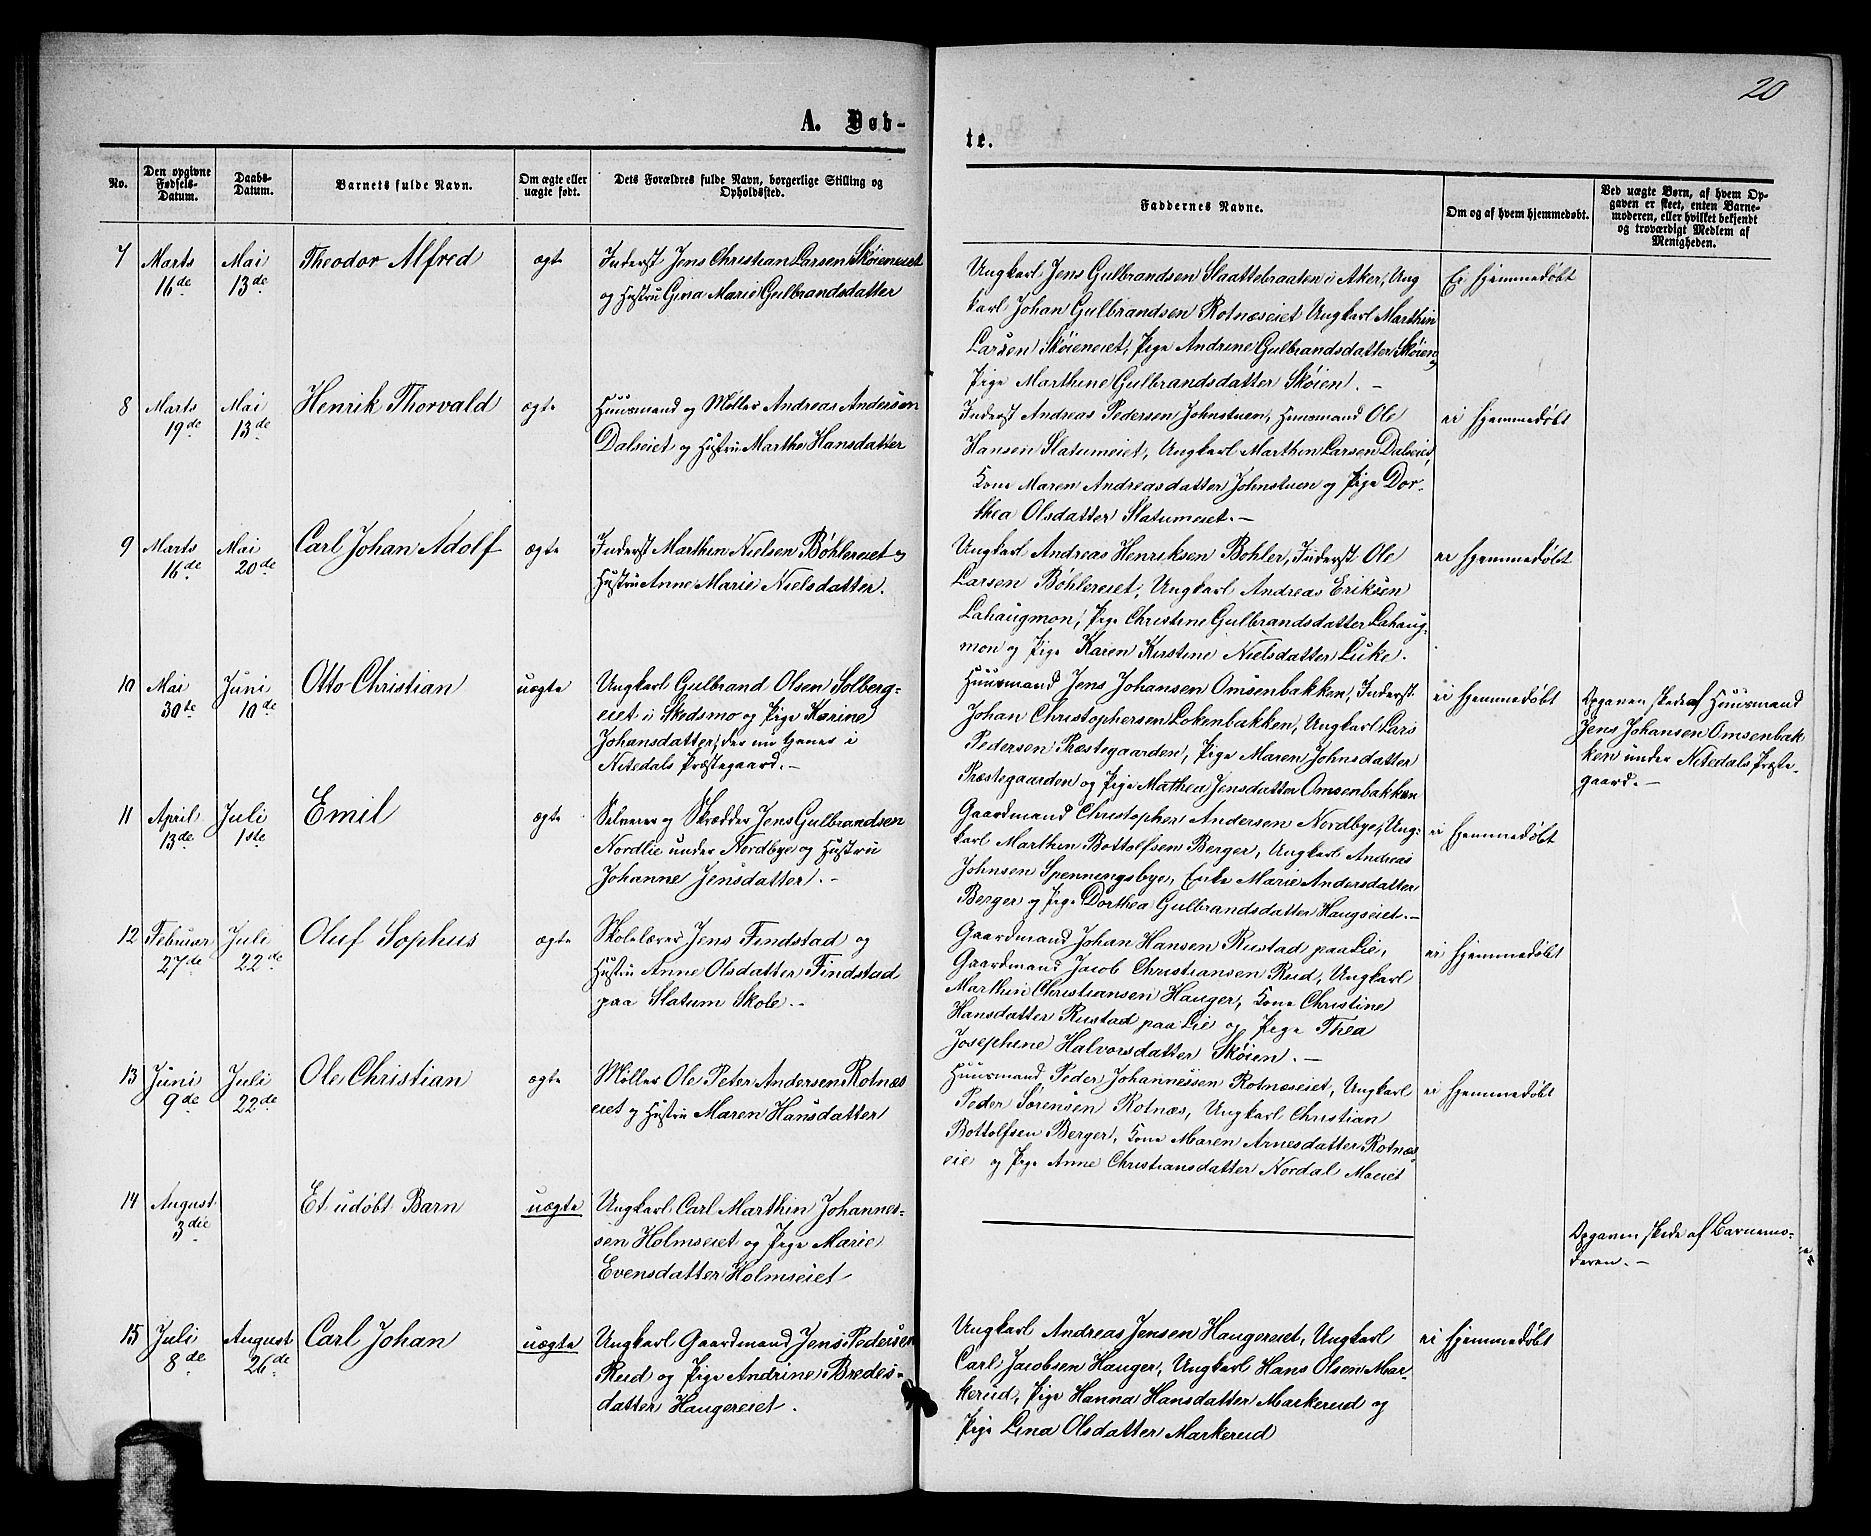 20
A. Døb-
te.
No.
Den opgivne Fødsels-Datum.
Daabs-Datum.
Barnets fulde Navn.
Om ægte eller uægte født.
Dets Forældres fulde Navn, borgerlige Stilling og Opholdssted.
Faddernes Navne.
Om og af hvem hjemmedøbt.
Ved uægte Børn, af hvem Opgaven er skeet, enten Barnemoderen, eller hvilket bekjendt og troværdigt Medlem af Menigheden.
7
Marts 16de
Mai 13de
Theodor Alfred
ægte
Inderst Jens Christian Larsen Skøieneiet
og Hustru Gina Marie Gulbrandsdatter
Ungkarl Jens Gulbrandsen Slaattebraaten i Aker, Ung
karl Johan Gulbrandsen Rotnæseiet Ungkarl Marthin
Larsen Skøieneiet, Pige Andrine Gulbrandsdatter Skøien
Pige Marthine Gulbrandsdatter Skøien. –
Ei hjemmedøbt
8
Marts 19de
Mai 13de
Henrik Thorvald
ægte
Huusmand og Møller Andreas Andersen
Dalseiet og Hustru Marthe Hansdatter
Inderst Andreas Pedersen Johnstuen, Huusmand Ole
Hansen Slatumeiet, Ungkarl Marthin Larsen Dalseiet,
Kone Maren Andreasdatter Johnstuen og Pige Dor-
thea Olsdatter Slatumeiet. –
ei hjemmedøbt
9
Marts 16de
Mai 20de
Carl Johan Adolf
ægte
Inderst Marthin Nielsen Bøhlereiet og
Hustru Anne Marie Nielsdatter.
Ungkarl Andreas Henriksen Bøhler, Inderst Ole
Larsen Bøhlereiet, Ungkarl Andreas Eriksen
Lahaugmon, Pige Christine Gulbrandsdatter Lahaug-
mon og Pige Karen Kirstine Nielsdatter Luke.
ei hjemmedøbt
10
Mai 30te
Juni 10de
Otto Christian
uægte
Ungkarl Gulbrand Olsen Solberg-
eiet i Skedsmo og Pige Karine
Johansdatter, der nu tjener i
Nitedals Præstegaard. –
Huusmand Jens Johansen Omsenbakken, Inderst
Johan Christophersen Løkenbakken, Ungkarl Lars
Pedersen Præstegaarden, Pige Maren Johnsdatter
Præstegaarden og Pige Mathea Jensdatter Omsenbakken
ei hjemmedøbt
Opgaven skede af Huusmand
Jens Johansen Omsenbak
ken under Nitedals Præste-
gaard. –
11
April 13de
Juli 1ste
Emil
ægte
Selveier og Skrædder Jens Gulbrandsen
Nordlie under Nordbye og Hustru
Johanne Jensdatter. –
Gaardmand Christopher Andersen Nordbye, Ung-
karl Marthin Bottolfsen Berger, Ungkarl Andreas
Johnsen Spenningsbye, Enke Marie Andersdatter
Berger og Pige Dorthea Gulbrandsdatter Haugseiet. –
ei hjemmedøbt
12
Februar 27de
Juli 22de
Oluf Sophus
ægte
Skolelærer Jens Findstad og
Hustru Anne Olsdatter Findstad
paa Slatum Skole. –
Gaardmand Johan Hansen Rustad paa Lie,
Gaardmand Jacob Christiansen Rud, Ungkarl
Marthin Christiansen Hauger, Kone Christine
Hansdatter Rustad paa Lie og Pige Thea
Josephine Halvorsdatter Skøien. –
ei hjemmedøbt
13
Juni 9de
Juli 22de
Ole Christian
ægte
Møller Ole Peter Andersen Rotnæs
eiet og Hustru Maren Hansdatter
Huusmand Peder Johannessen Rotnæseiet, Ungkarl
Peder Sørensen Rotnæs, Ungkarl Christian
Bottolfsen Berger, Kone Maren Arnesdatter Rotnæs
eie og Pige Anne Christiansdatter Nordal Moeiet
ei hjemmedøbt
14
August 3die
Et udøbt Barn
uægte
Ungkarl Carl Marthin Johannes-
sen Holmseiet og Pige Marie
Evensdatter Holmseiet
Opgaven skede af Barnemo-
deren. –
15
Juli 8de
August 26de
Carl Johan
uægte
Ungkarl Gaardmand Jens Pedersen
Rud og Pige Andrine Bredes-
datter Haugereiet.
Ungkarl Andreas Jensen Haugereiet, Ungkarl
Carl Jacobsen Hauger, Ungkarl Hans Olsen Mar-
kerud, Pige Hanna Hansdatter Markerud og
Pige Lena Olsdatter Markerud
ei hjemmedøbt